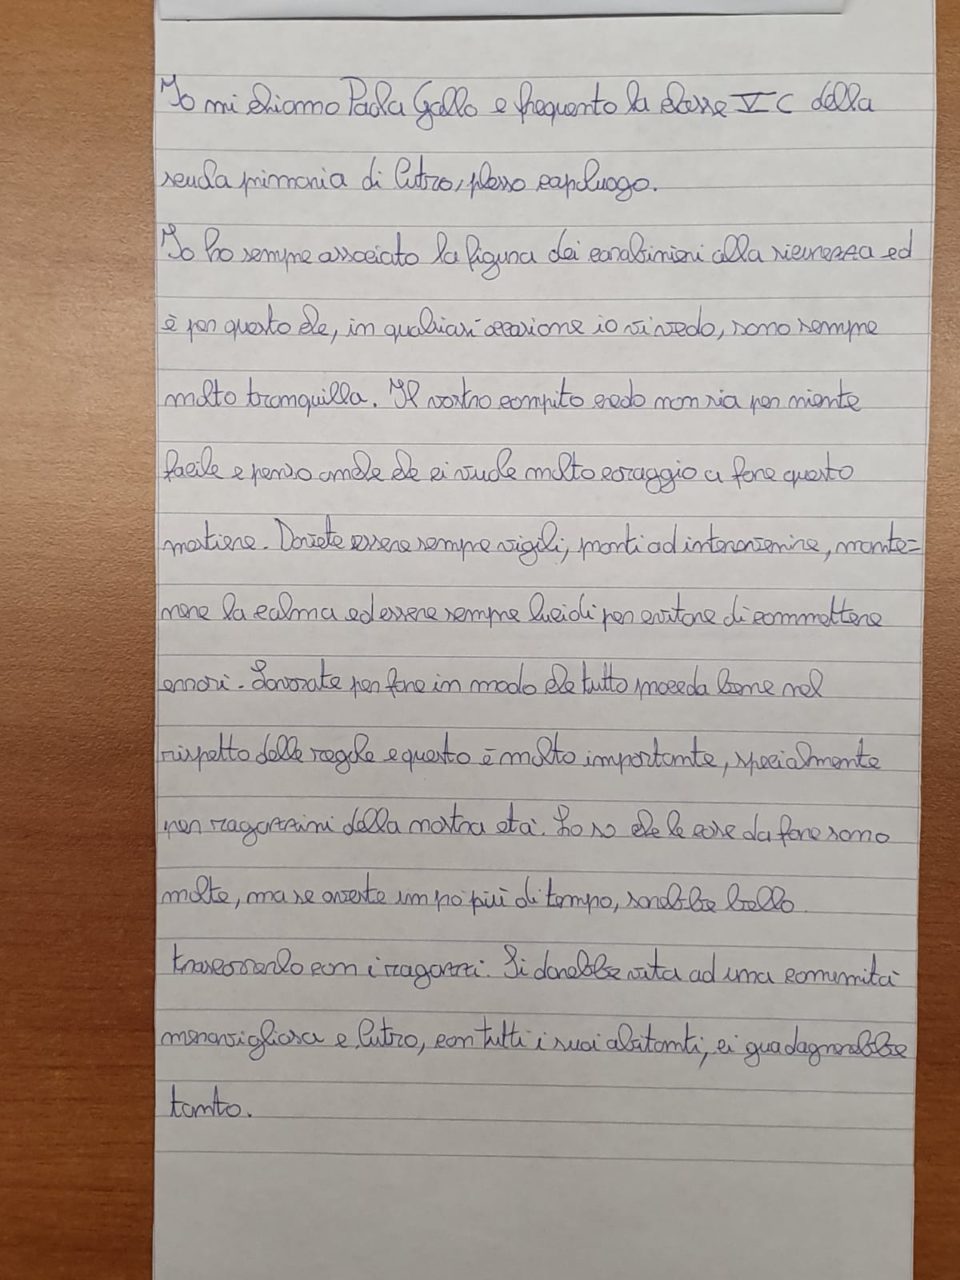 Io mi chiamo Paola Gallo e frequento la classe V C della
scuola primaria di Cutro, plesso capoluogo.
Io ho sempre associato la figura dei carabinieri alla sicurezza ed
è per questo che, in qualsiasi occasione io vi vedo, sono sempre
molto tranquilla. Il vostro compito credo non sia per niente
facile e penso anche che ci vuole molto coraggio a fare questo
mestiere. Dovete essere sempre vigili, pronti ad intervenire, mante=
nere la calma ed essere sempre lucidi per evitare di commettere
errori. Lavorate per fare in modo che tutto proceda bene nel
rispetto delle regole e questo è molto importante, specialmente
per ragazzini della nostra età. Lo so che le cose da fare sono
molte, ma se aveste un po più di tempo, sarebbe bello
trascorrerlo con i ragazzi. Si darebbe vita ad una comunità
meravigliosa e Cutro, con tutti i suoi abitanti, ci guadagnerebbe
tanto.